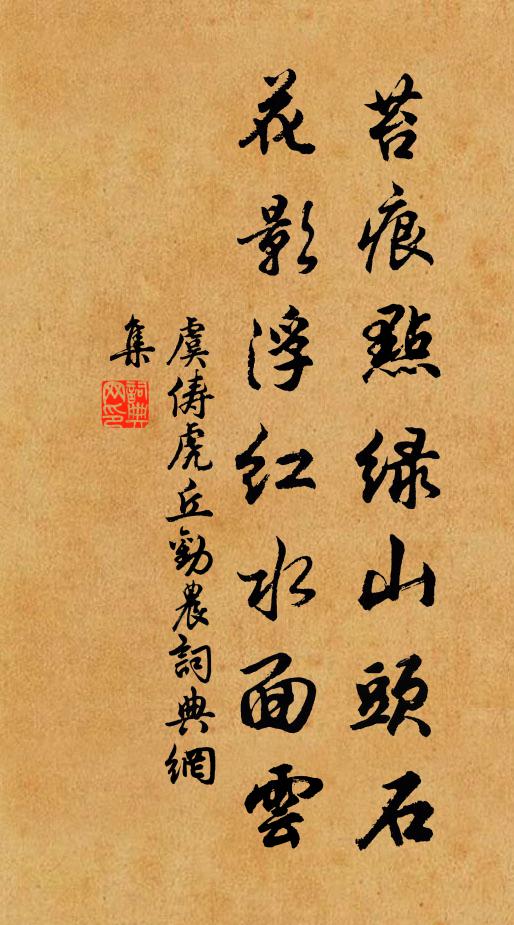 苔痕點緑山頭石
花影浮紅水面雲
虞儔虎丘勸農詞典網
集
詞典網印